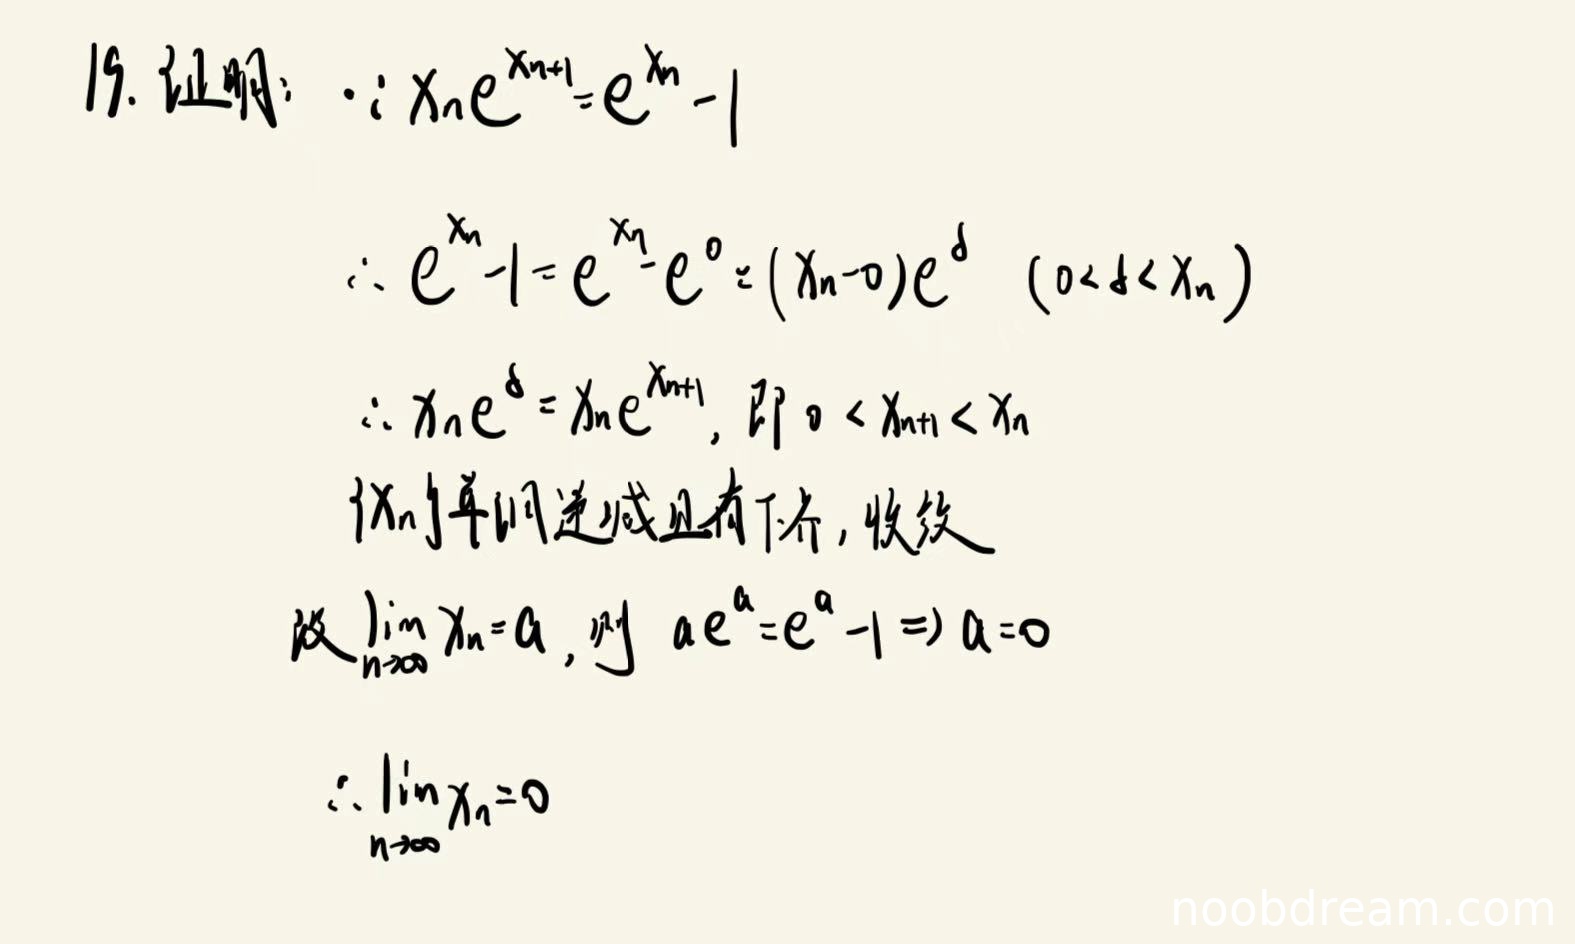 19. 证明: ∵ xₙe^(xₙ₊₁) = e^(xₙ) - 1
∴ e^(xₙ) - 1 = e^(xₙ) - e^0 = (xₙ-0)e^δ (0<δ<xₙ)
∴ xₙe^δ = xₙe^(xₙ₊₁), 即 0 < xₙ₊₁ < xₙ
{xₙ}单调递减且有下界, 收敛
设 lim n→∞ xₙ = a, 则 ae^a = e^a - 1 ⇒ a = 0
∴ lim n→∞ xₙ = 0
noobdream.com